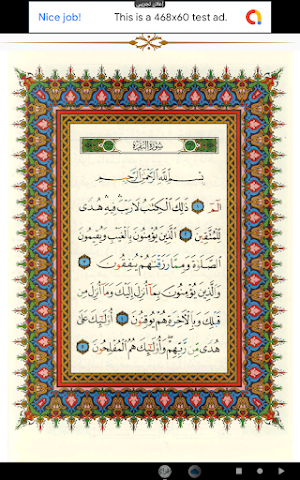 إعلان تجريبي
Nice job!
This is a 468x60 test ad.
سورة البقرة
بسم الله الرحمن الرحيم
الٓمٓ ۝ ذَٰلِكَ الْكِتَٰبُ لَا رَيْبَ ۛ فِيهِ ۛ هُدًى
لِّلْمُتَّقِينَ ۝ الَّذِينَ يُؤْمِنُونَ بِالْغَيْبِ وَيُقِيمُونَ
الصَّلَوٰةَ وَمِمَّا رَزَقْنَٰهُمْ يُنفِقُونَ ۝
وَالَّذِينَ يُؤْمِنُونَ بِمَا أُنزِلَ إِلَيْكَ وَمَا أُنزِلَ مِن
قَبْلِكَ وَبِالْءَاخِرَةِ هُمْ يُوقِنُونَ ۝ أُولَٰئِكَ عَلَىٰ
هُدًى مِّن رَّبِّهِمْ وَأُولَٰئِكَ هُمُ الْمُفْلِحُونَ ۝